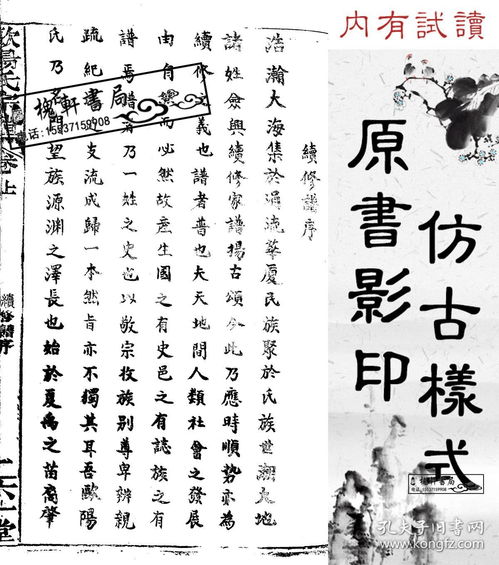 内有試讀
原書影印
仿古樣式
續修譜序
浩瀚大海集於涓流華厦氏族聚於氏族世潮大地
諸姓僉興續修家譜揚古頌今此乃應時順势亦為
續修之義也譜者普也夫天地間人類社會之發展
由自族而必然故產生國之有史邑之有誌族之有
譜焉譜者乃一姓之史也以敬宗收族别尊卑辨親
疏紀之支流成歸一本然旨亦不獨其耳吾歐陽
氏乃名門望族源渊之澤長也始於夏禹之苗裔肇
歐陽氏宗譜卷上
續修譜序
六一堂
槐軒書局
电话:15937159908
槐軒書局
电话:15937159908
孔夫子旧书网
www.kongfz.com